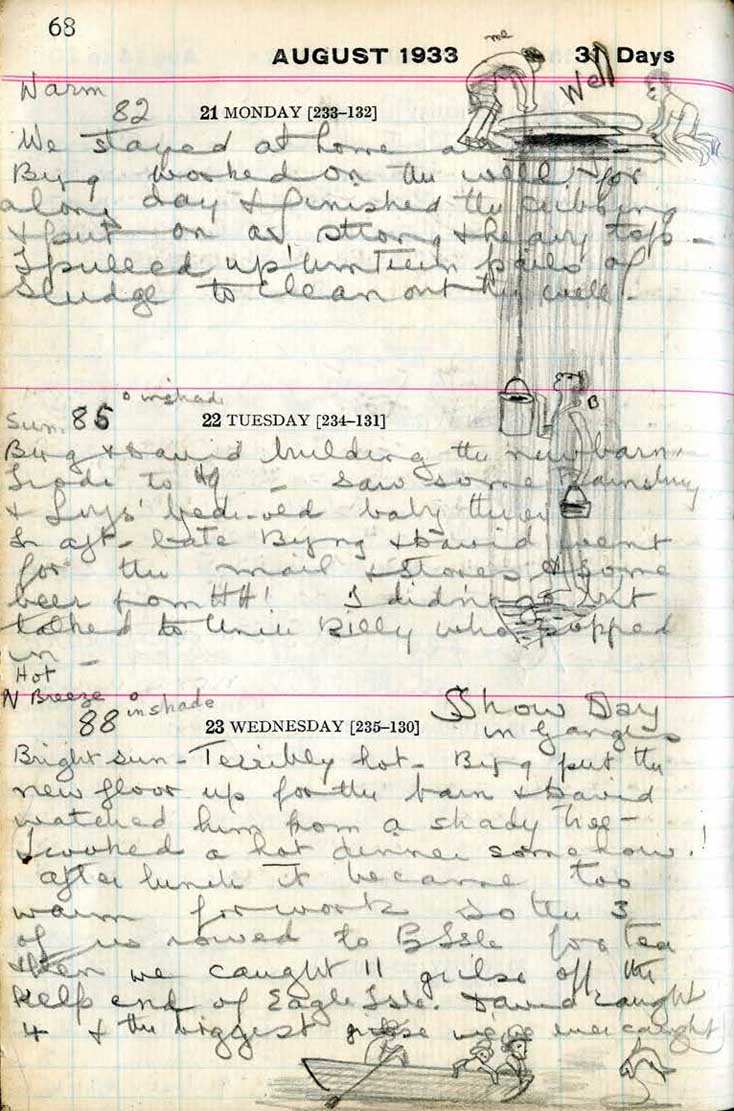 68
AUGUST 1933
31 Days
me
Well
Warm
82
21 MONDAY [233–132]
We stayed at home a
Byng worked on the well for
along day & finished the cribbing
& put on a strong & heavy top –
I pulled up umteen pails of
sludge to clean out the well.
B
Sun. 85 ° in shade
22 TUESDAY [234–131]
Byng & David building the new barn.
to – Saw some
& baby there
In aft. late Byng & David went
for the mail & stores & some
beer from HH! I didn't go but
talked to Uncle Billy who popped
in –
Hot
N Breeze
88 ° in shade
23 WEDNESDAY [235–130]
Show Day
in Ganges
Bright sun – Terribly hot – Byng put the
new floor up for the barn & David
watched him from a shady tree –
I cooked a hot dinner somehow!
after lunch it became too
warm for work so the 3
of us rowed to B Isle for tea
then we caught 11 grilse off the
Kelp end of Eagle Isle. David caught
4 & the biggest grilse we've ever caught